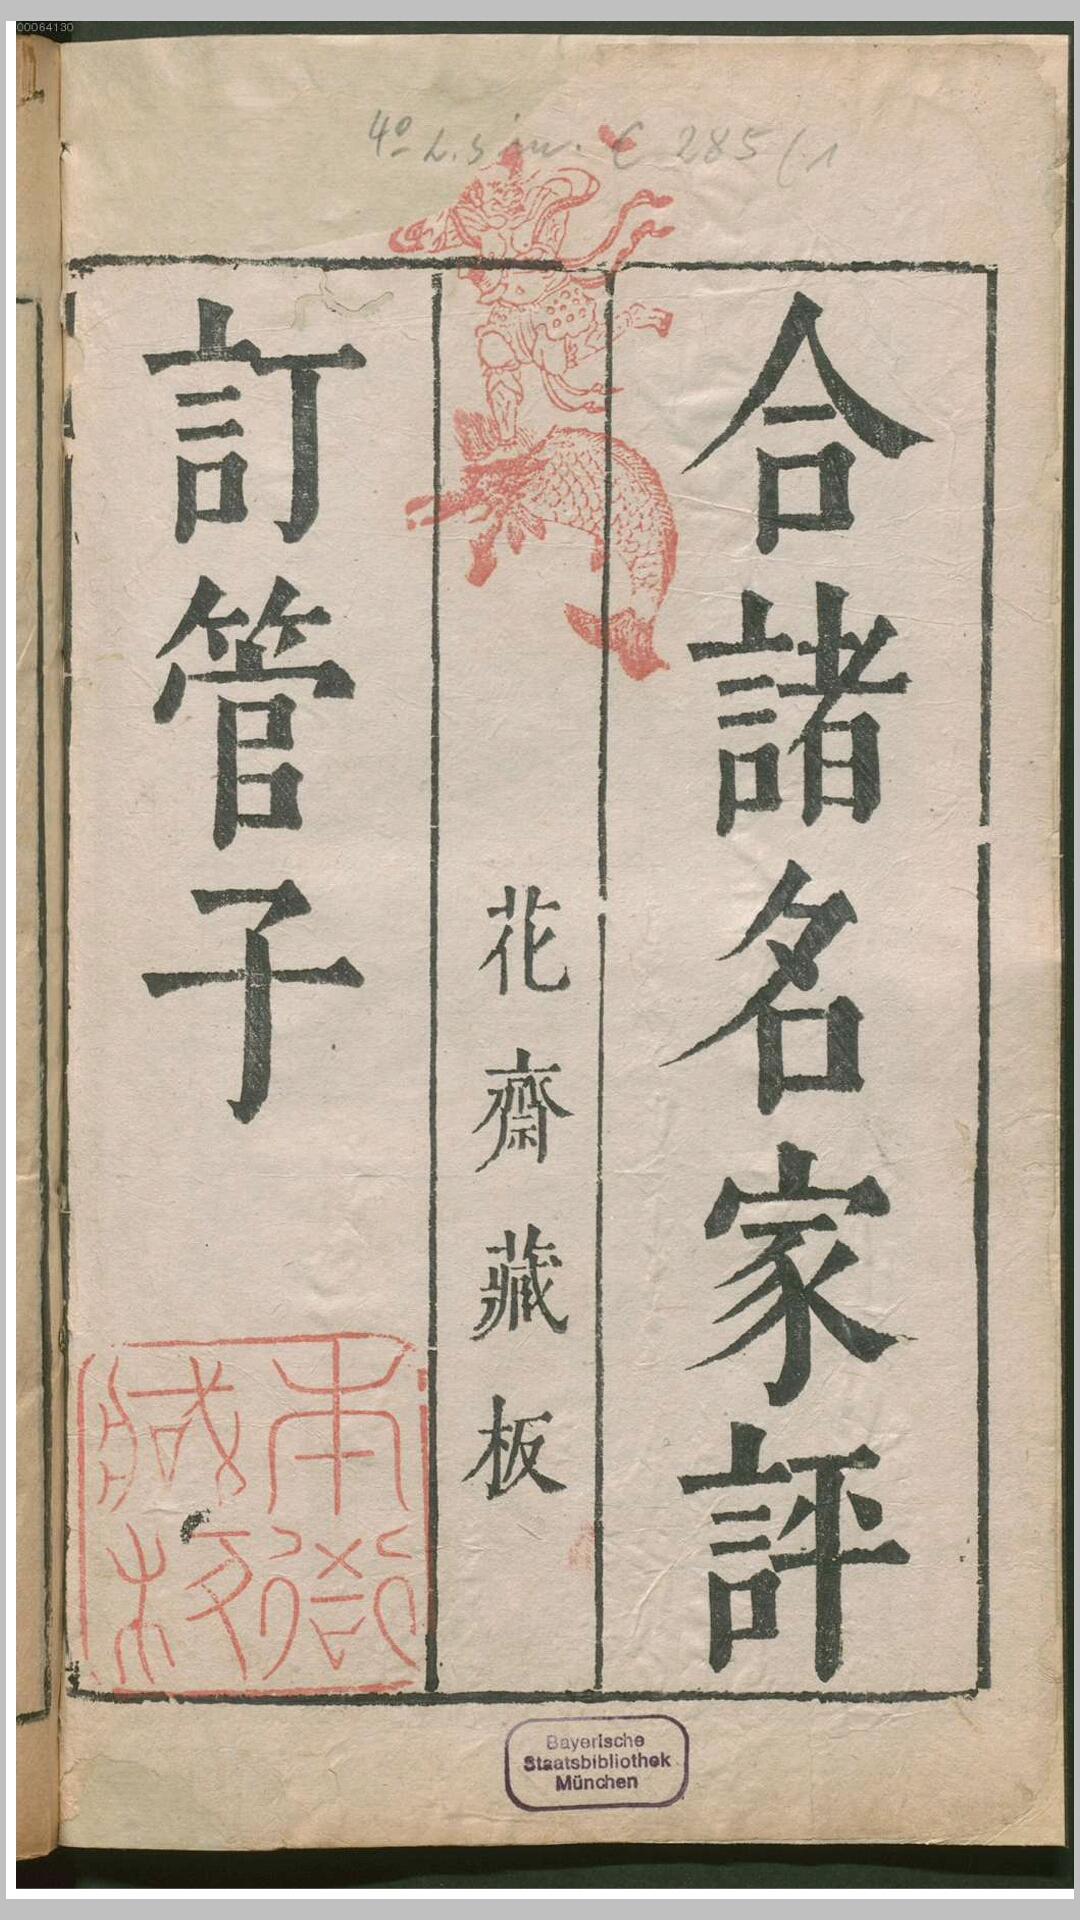 00064130
4º L. sin. C 285 (1
合諸名家評
花齋藏板
訂管子
本衙
藏板
Bayerische
Staatsbibliothek
München